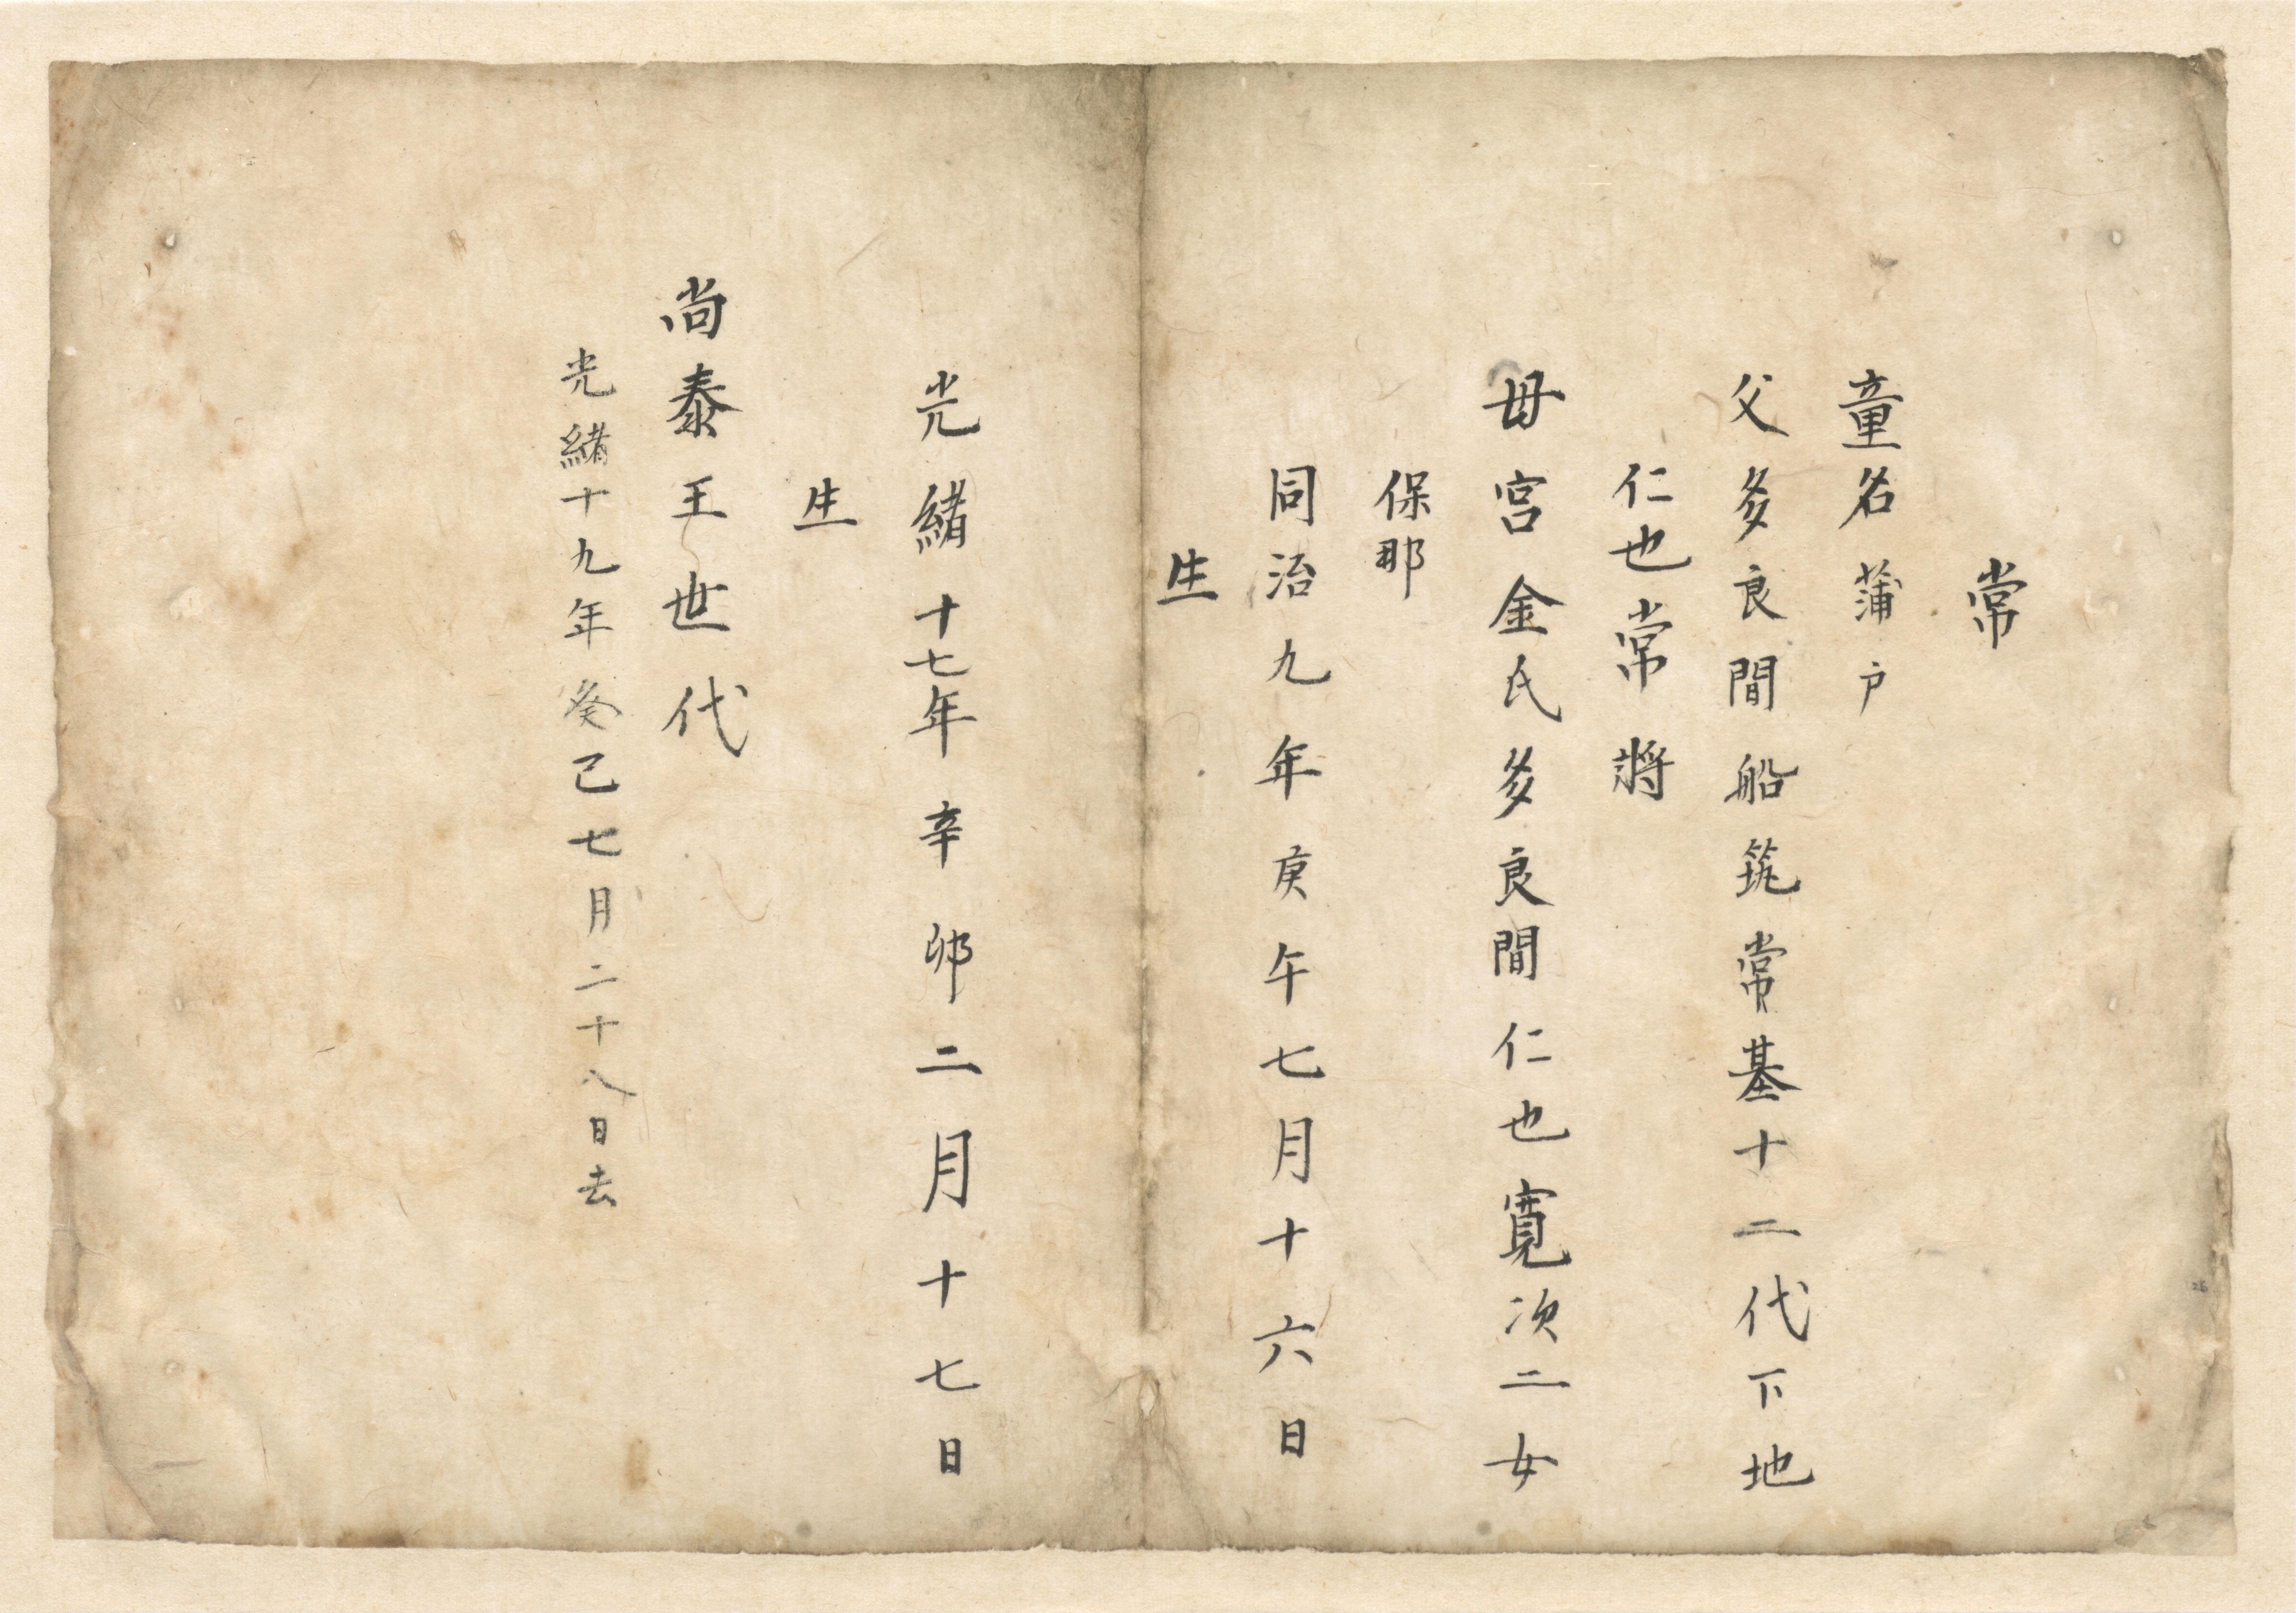 常
童名蒲戸
父多良間船筑常基十二代下地
仁也常將
母宮金氏多良間仁也寛次二女
保那
同治九年庚午七月十六日
生
光緒十七年辛卯二月十七日
生
尚泰王世代
光緒十九年癸巳七月二十八日去